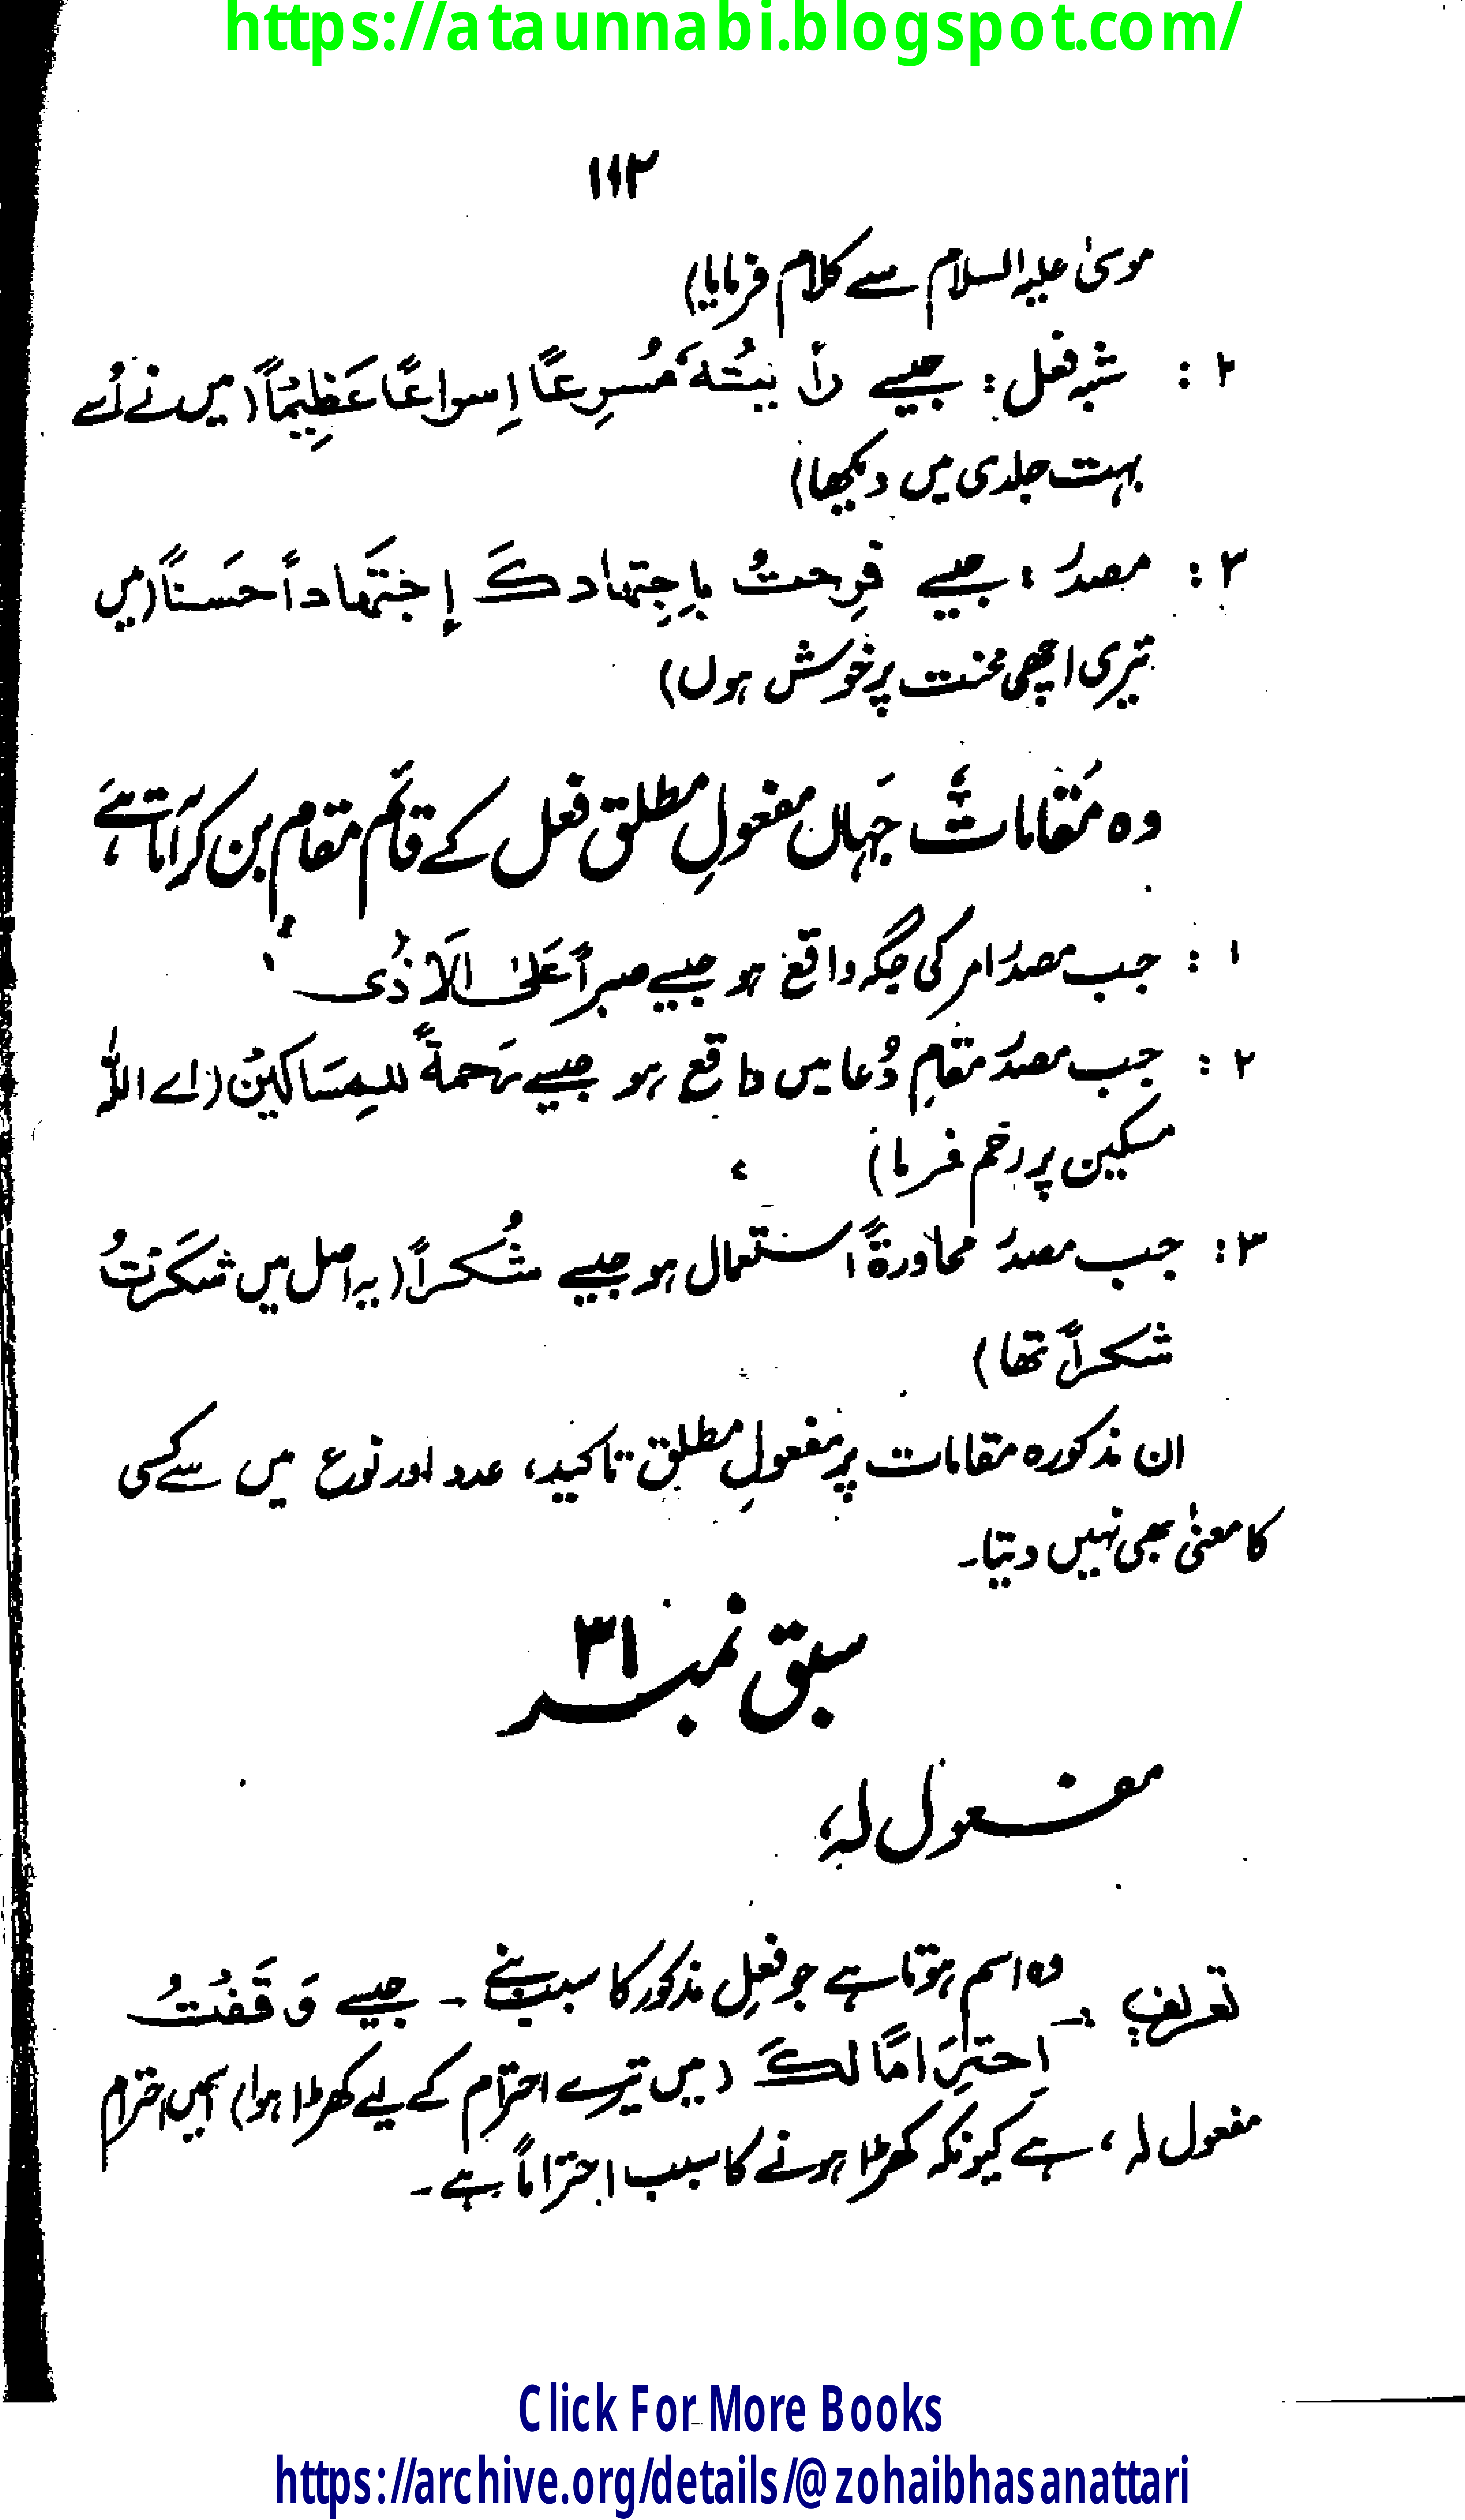 https://ataunnabi.blogspot.com/
۱۱۳
موسیٰ علیہ السلام سے کلام فرمایا)
۲ : شبہ فعل : جیسے رأیتُہٗ مُسرِعًا اِسراعًا عَظِیْمًا (میں نے اُسے
بہت جلدی میں دیکھا)
۳ : مصدر : جیسے فرِحتُ بِاِجتِہادِکَ إِجتَہاداً حَسَناً (میں
تیری اچھی محنت پر خوش ہوں)
وہ مقامات جہاں مفعولِ مطلق فعل کے قائم مقام بن کر آتا ہے
۱ : جب مصدر امر کی جگہ واقع ہو جیسے صبراً عَلیٰ الاَذٰی
۲ : جب مصدر مقامِ دُعا میں واقع ہو جیسے رَحمۃً للمِسَاکین (اے اللہ
مسکین پر رحم فرما)
۳ : جب مصدر محاورۃً استعمال ہو جیسے شُکراً (یہ اصل میں شکَرْتُ
شکراً تھا)
ان مذکورہ مقامات پر مفعولِ مطلق تاکید، عدد اور نوع میں سے کسی
کا معنیٰ بھی نہیں دیتا۔
سبق نمبر ۳۱
مفعول لہٗ
تعریف :۔ وہ اسم ہوتا ہے جو فعلِ مذکور کا سبب بنے ۔ جیسے وَقَفْتُ
اِحتِرَامًا لکَ (میں تیرے احترام کے لیے کھڑا ہوا) اسمیں احترام
مفعول لہ، ہے کیونکہ کھڑا ہونے کا سبب احتراماً ہے۔
Click For More Books
https://archive.org/details/@zohaibhasanattari